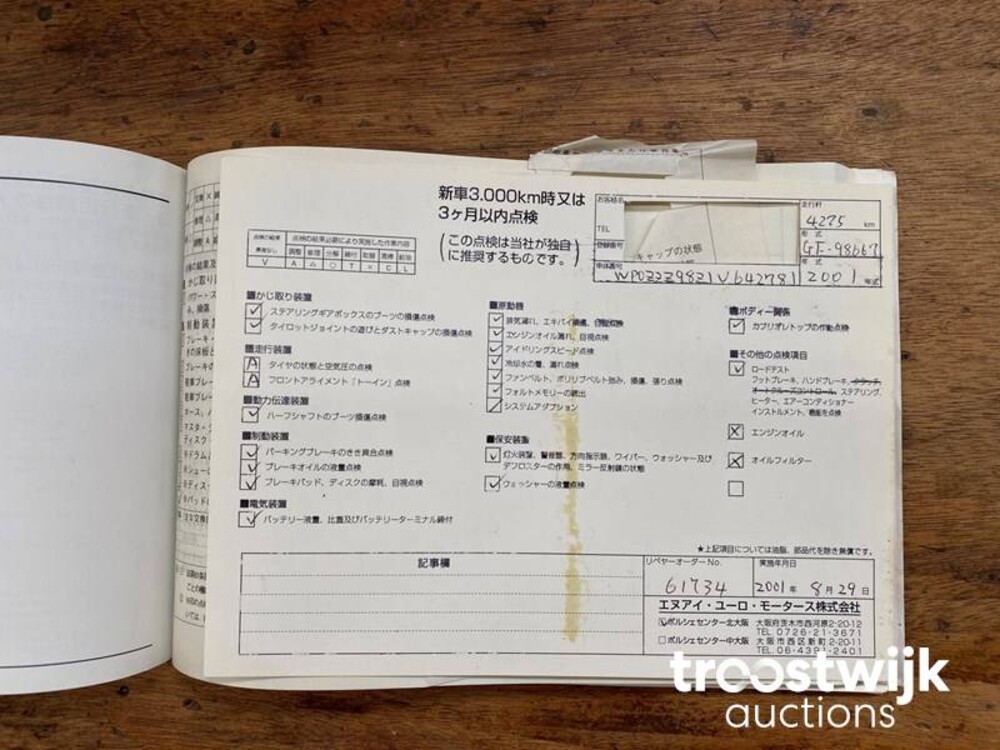 新車3.000km時又は
3ヶ月以内点検
(この点検は当社が独自
に推奨するものです。)
点検の結果
点検の結果必要により実施した作業内容
異常なし
調整 修理 分解 締付 取替 清掃 給油
V A △ ○ T × C L
お客様名
TEL
登録番号
キャップの状態
車体番号
WP0ZZZ98Z1V642781
走行粁
4275 km
形式
GF-98667
2001 年式
■かじ取り装置
ステアリングギアボックスのブーツの損傷点検
タイロットジョイントの遊びとダストキャップの損傷点検
■走行装置
A タイヤの状態と空気圧の点検
A フロントアライメント「トーイン」点検
■動力伝達装置
ハーフシャフトのブーツ損傷点検
■制動装置
パーキングブレーキのきき具合点検
ブレーキオイルの液量点検
ブレーキパッド、ディスクの摩耗、目視点検
■電気装置
バッテリー液量、比重及びバッテリーターミナル締付
■原動機
排気漏れ、エキパイ損傷、目視点検
エンジンオイル漏れ、目視点検
アイドリングスピード点検
冷却水の量、漏れ点検
ファンベルト、ポリリブベルト弛み、損傷、張り点検
フォルトメモリーの読出
システムアダプション
■保安装置
灯火装置、警報器、方向指示器、ワイパー、ウォッシャー及び
デフロスターの作用、ミラー反射鏡の状態
ウォッシャーの液量点検
■ボディー関係
カブリオレトップの作動点検
■その他の点検項目
ロードテスト
フットブレーキ、ハンドブレーキ、クラッチ、
オートクルーズコントロール、ステアリング、
ヒーター、エアーコンディショナー
インストルメント、機能を点検
エンジンオイル
オイルフィルター
★上記項目については油脂、部品代を除き無償です。
記事欄
リペヤーオーダーNo.
61734
実施年月日
2001年 8月29日
エヌアイ・ユーロ・モータース株式会社
ポルシェセンター北大阪 大阪府茨木市西河原2-20-12
TEL.0726-21-3671
ポルシェセンター中大阪 大阪市西区新町2-20-11
TEL.06-4391-2401
troostwijk
auctions